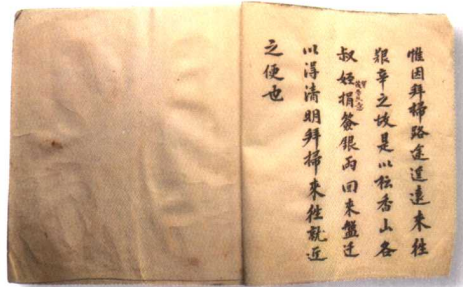 惟因拜掃路途遥遠來徃
艱辛之故是以香山各
叔姪捐簽銀両回來盤迁
以得清明拜掃來徃就近
之便也